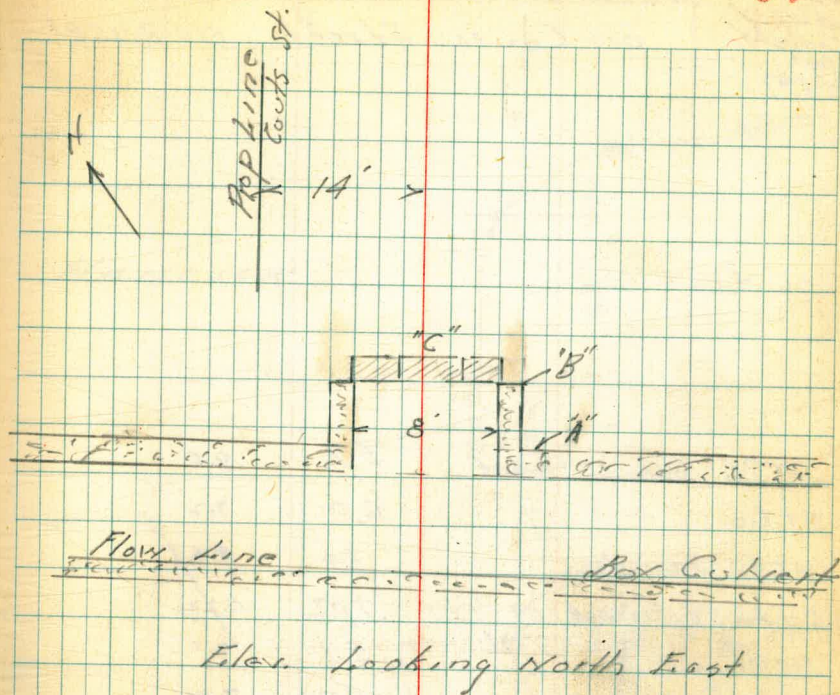 Prop Line
Couts St.
14'
"C"
"B"
8'
"A"
Flow Line
Box Culvert
Elev. Looking North East